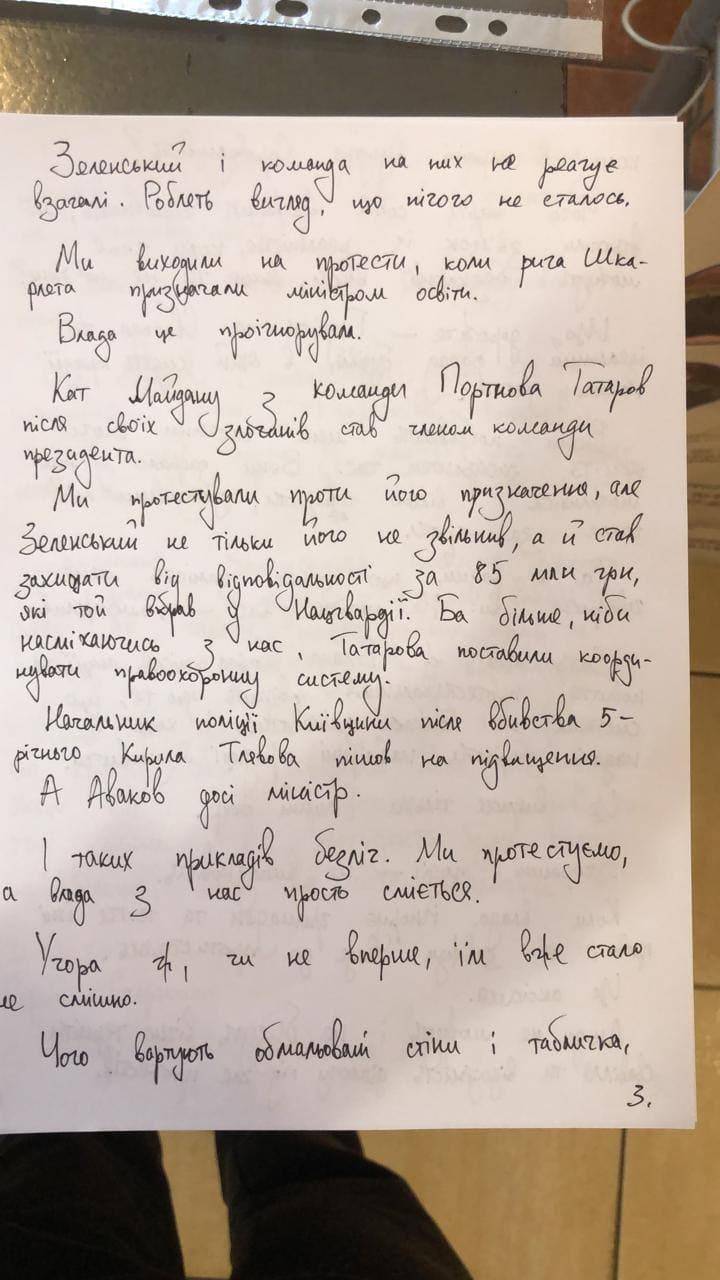 Зеленський і команда на них не реагує
взагалі. Роблять вигляд, що нічого не сталось.
Ми виходили на протести, коли рига Шка-
рлета призначали міністром освіти.
Влада це проігнорувала.
Кат Майдану з команди Портнова Татаров
після своїх злочинів став членом команди
президента.
Ми протестували проти його призначення, але
Зеленський не тільки його не звільнив, а й став
захищати від відповідальності за 85 млн грн,
які той вкрав у Нацгвардії. Ба більше, ніби
насміхаючись з нас, Татарова поставили коорди-
нувати правоохоронну систему.
Начальник поліції Київщини після вбивства 5-
річного Кирила Тлявова пішов на підвищення.
А Аваков досі міністр.
І таких прикладів безліч. Ми протестуємо,
а влада з нас просто сміється.
Учора ж, чи не вперше, їм вже стало
не смішно.
Чого вартують обмальовані стіни і табличка,
3.